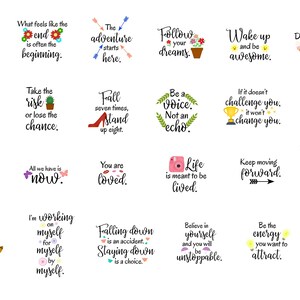 What feels like the
end
is often the
beginning.
The
adventure
starts
here.
Follow
your
dreams.
Wake up
and be
awesome.
D
Take the
risk
or lose the
chance.
Fall
seven times,
stand
up eight.
Be a
voice.
Not an
echo.
If it doesn't
challenge you,
it won't
change you.
All we have is
now.
You are
loved.
Life
is meant to be
lived.
Keep moving
forward.
I'm working
on
myself
for
myself
by
myself.
Falling down
is an accident.
Staying down
is a choice.
Believe in
yourself
and you will
be
unstoppable.
Be the
energy
you want to
attract.